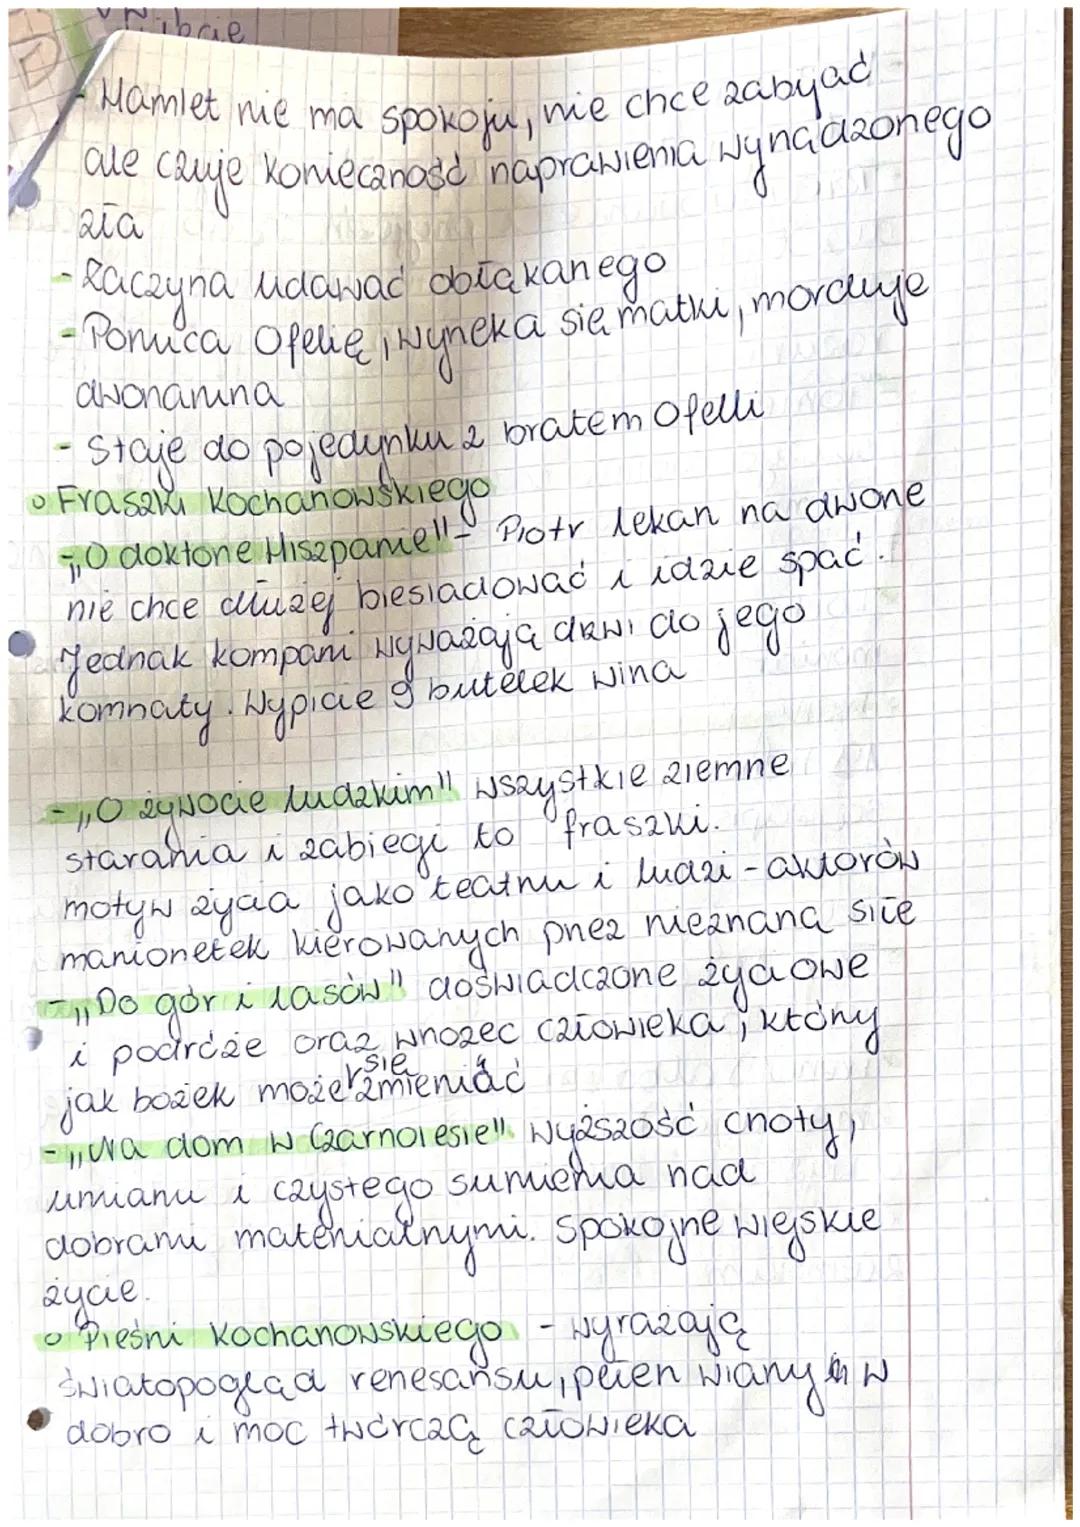 - Hamlet nie ma spokoju, nie chce zabyać
ale czuje konieczność naprawienia wyrządzonego
zła
- Zaczyna udawać obłąkanego
- Porzuca Ofelię, wyrzeka się matki, morduje
dworzanina
- Staje do pojedynku z bratem Ofelli
o Fraszki Kochanowskiego
- „O doktorze Hiszpanie" - Piotr lekarz na dworze
nie chce dłużej biesiadować i idzie spać.
Jednak kompani wyważają drzwi do jego
komnaty. Wypicie 9 butelek wina
- „O żywocie ludzkim" wszystkie ziemne
starania i zabiegi to fraszki.
motyw życia jako teatru i ludzi - aktorów
marionetek kierowanych przez nieznaną siłę
- „Do gór i lasów" doświadczone życiowe
i podróże oraz wzorzec człowieka, który
jak bożek może się zmieniać
- „Na dom w Czarnolesie" wyższość cnoty,
umiaru i czystego sumienia nad
dobrami materialnymi. Spokojne wiejskie
życie.
o Pieśni Kochanowskiego - wyrażają
światopogląd renesansu, pełen wiary w
dobro i moc twórczą człowieka